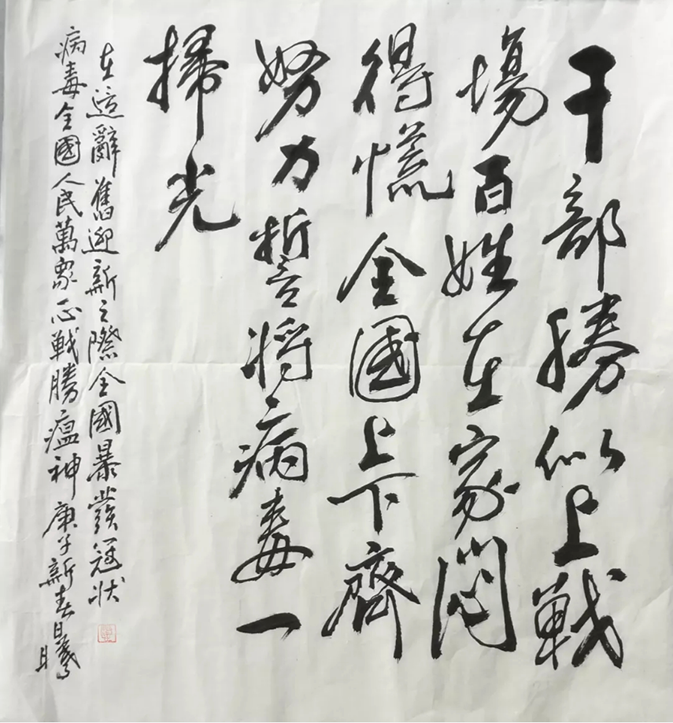 干部勝似上戰
場百姓在家悶
得慌全國上下齊
努力誓將病毒一
掃光
在這辭舊迎新之際全國暴發冠狀
病毒全國人民萬眾一心戰勝瘟神庚子新春